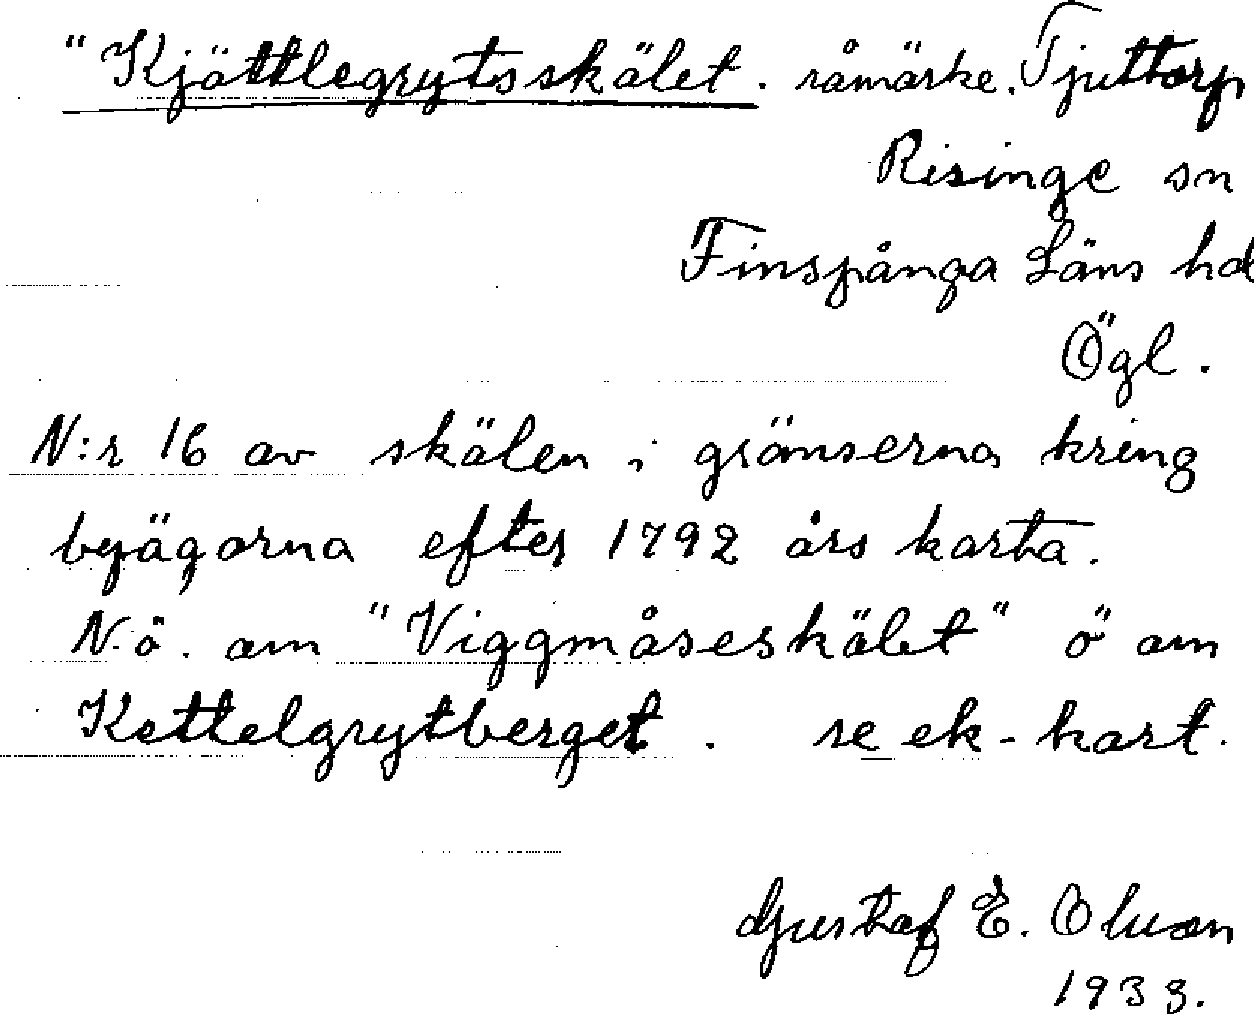 "Kjöttlegrytsskälet. råmärke. Tjuttorp
Risinge sn
Finspånga Läns hd
Ögl.
N:r 16 av skälen i gränserna kring
byägorna efter 1792 års karta.
N.ö. om "Viggmåseskälet" ö om
Kettelgrytberget. se ek-kart.
Gustaf E.
1933.